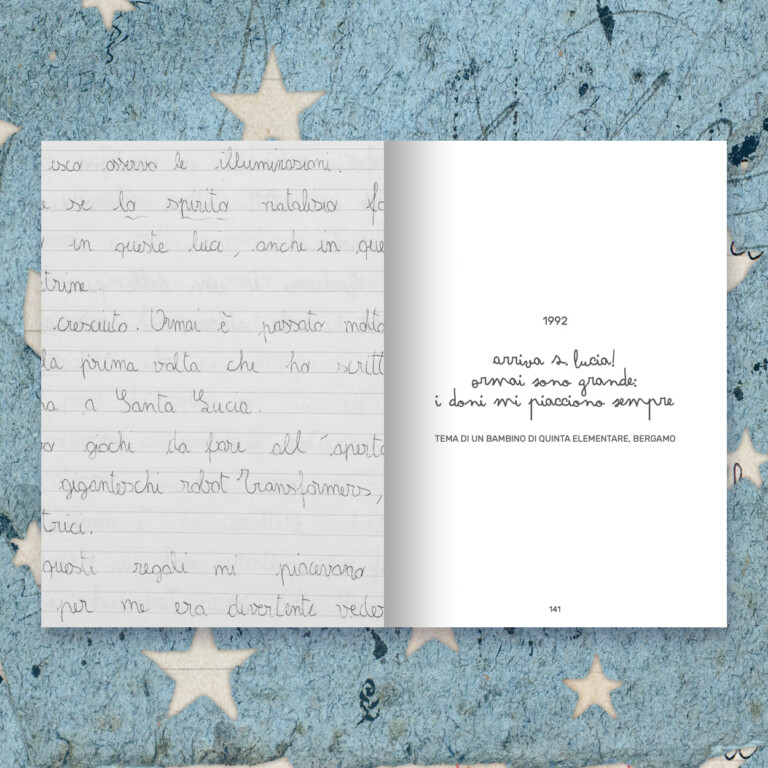 osserva le illuminazioni.
e se la spirito natalizio fa
in queste luci, anche in que
trine.
cresciuto. Ormai è passato molto
la prima volta che ho scritt
a a Santa Lucia.
giochi da fare all'aperto
giganteschi robot Transformers,
trici.
questi regali mi piacevano
per me era divertente veder
1992
arriva s. lucia!
ormai sono grande:
i doni mi piacciono sempre
TEMA DI UN BAMBINO DI QUINTA ELEMENTARE, BERGAMO
141